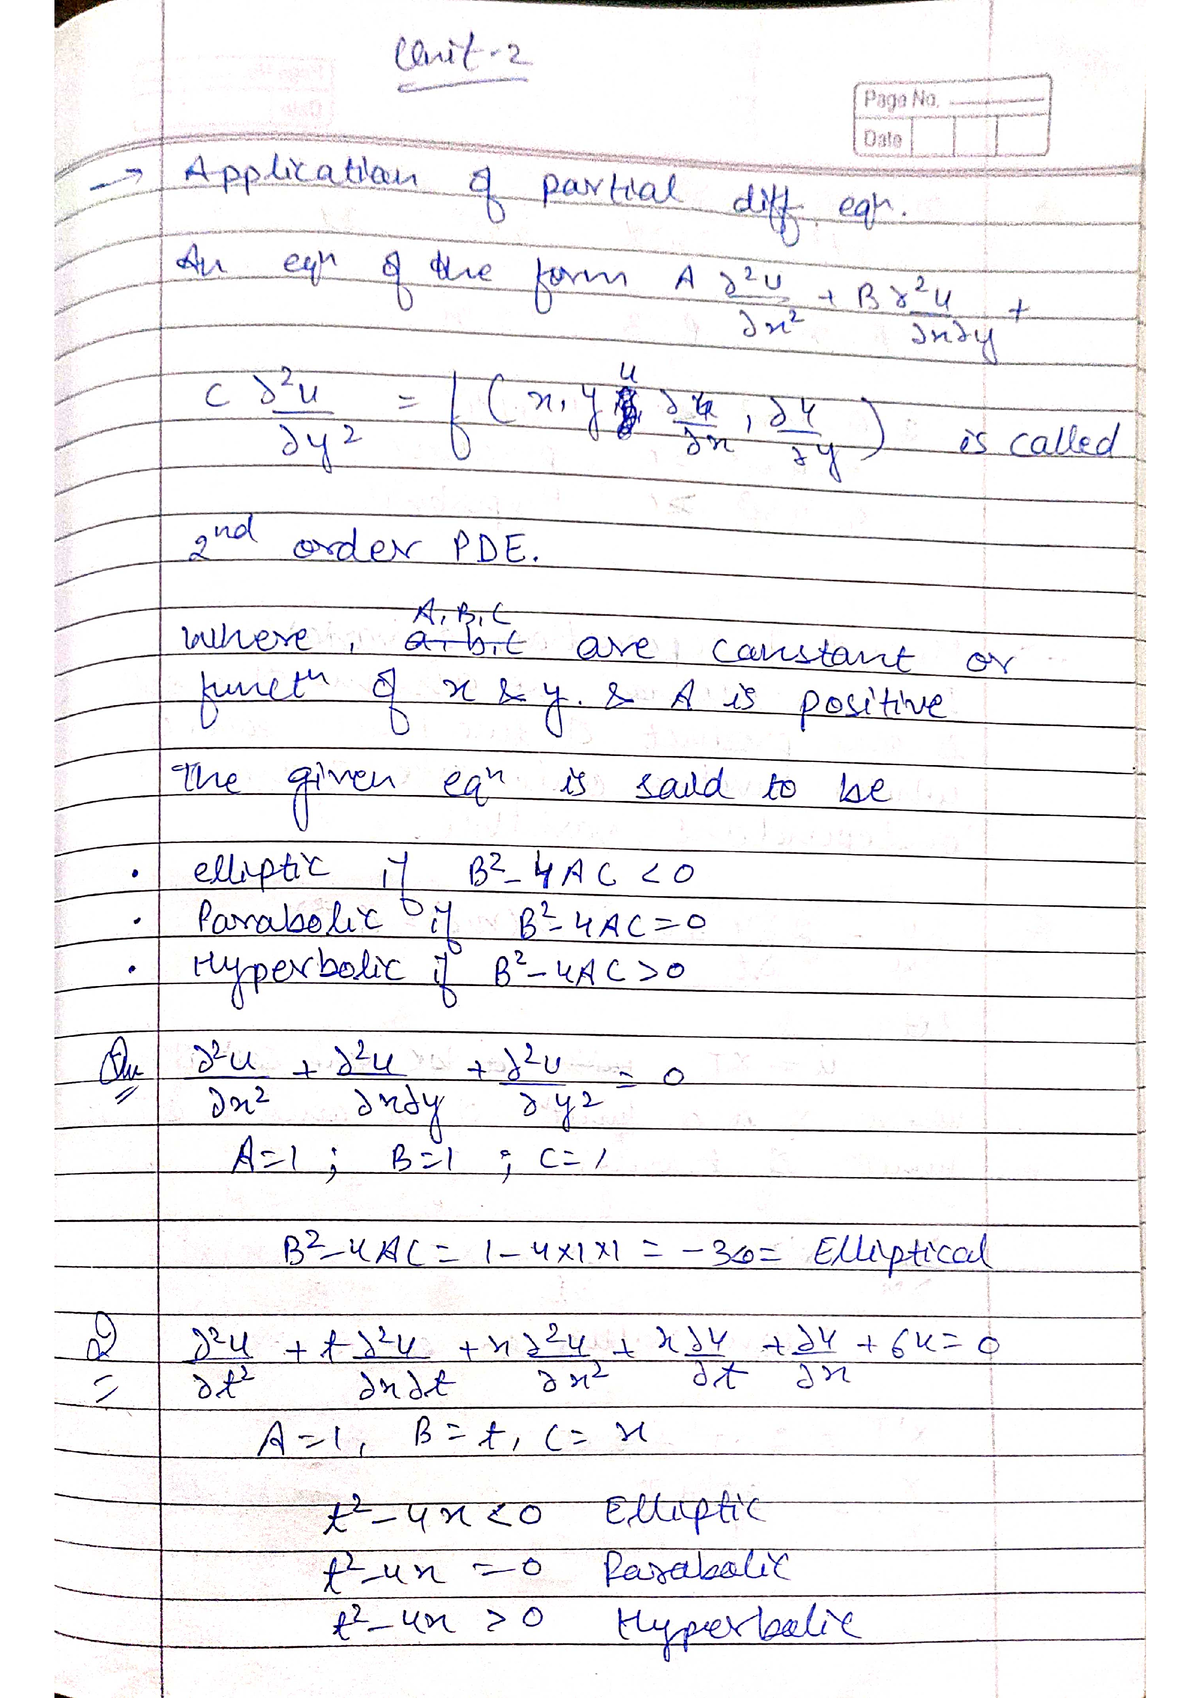 Unit-2
Page No.
Date
→ Application of partial diff. eqn.
An eqn of the form A ∂²u/∂x² + B ∂²u/∂x∂y +
C ∂²u/∂y² = f(x, y, u, ∂u/∂x, ∂u/∂y) is called
2nd order PDE.
where, A, B, C are constant or
functn of x & y. & A is positive
The given eqn is said to be
• elliptic if B²-4AC<0
• Parabolic if B²-4AC=0
• Hyperbolic if B²-4AC>0
Que ∂²u/∂x² + ∂²u/∂x∂y + ∂²u/∂y² = 0
A=1 ; B=1 ; C=1
B²-4AC = 1-4×1×1 = -3 = Elliptical
Q ∂²u/∂t² + t ∂²u/∂x∂t + x ∂²u/∂x² + x ∂u/∂t + ∂u/∂x + 6u = 0
A=1, B=t, C=x
t²-4x<0 Elliptic
t²-4x=0 Parabolic
t²-4x>0 Hyperbolic